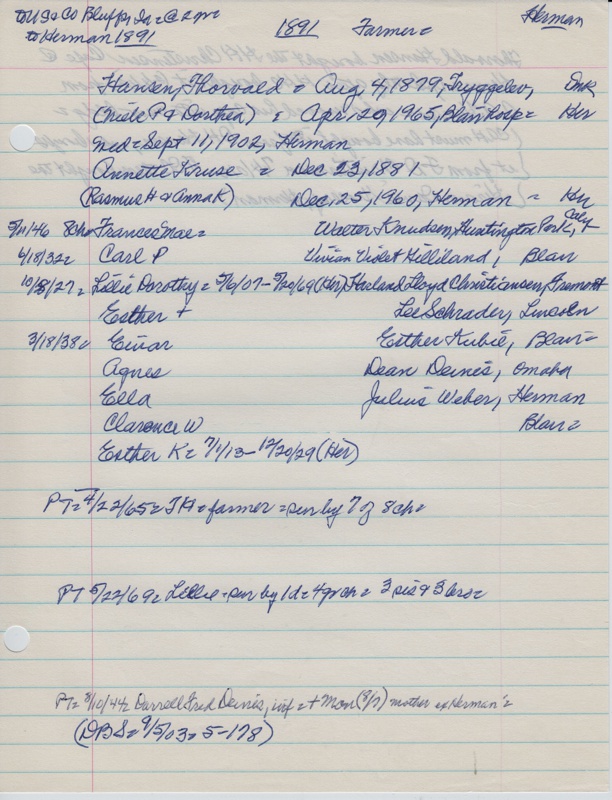 to US to Co Bluffs, Ia = @ 2 yrs
to Herman 1891
1891 Farmer = Herman
Hansen, Thorvald = Aug 4, 1879, Tryggelev, Dnk
(Niels P & Dorthea) = Apr 20, 1965, Blair Hosp = Her
md = Sept 11, 1902, Herman
Annette Kruse = Dec 23, 1881
(Rasmus H & Anna K) Dec, 25, 1960, Herman = Her
5/11/46 8ch = Frances Mae = Walter Knudsen, Huntington Park, Caly +
4/18/32 = Carl P Vivian Violet Gilliland, Blair
10/8/27 = Lillie Dorothy = 5/6/07 - 5/20/69 (Her), Harland Lloyd Christiansen, Fremont
Esther + Lee Schrader, Lincoln
3/18/38 = Einar Esther Kubie, Blair =
Agnes Dean Deines, Omaha
Ella Julius Weber, Herman
Clarence W Blair =
Esther K = 7/1/13 - 12/20/29 (Her)
PT = 4/22/65 = TH = farmer = sur by 7 of 8 ch =
PT 5/22/69 = Lillie = sur by 1 d = 4 grch = 3 sis & 3 bros =
PT = 8/10/44 = Darrell Fred Deines, inf = + Mon (8/7) mother ex Herman =
(DBS = 9/5/03 = 5-178)